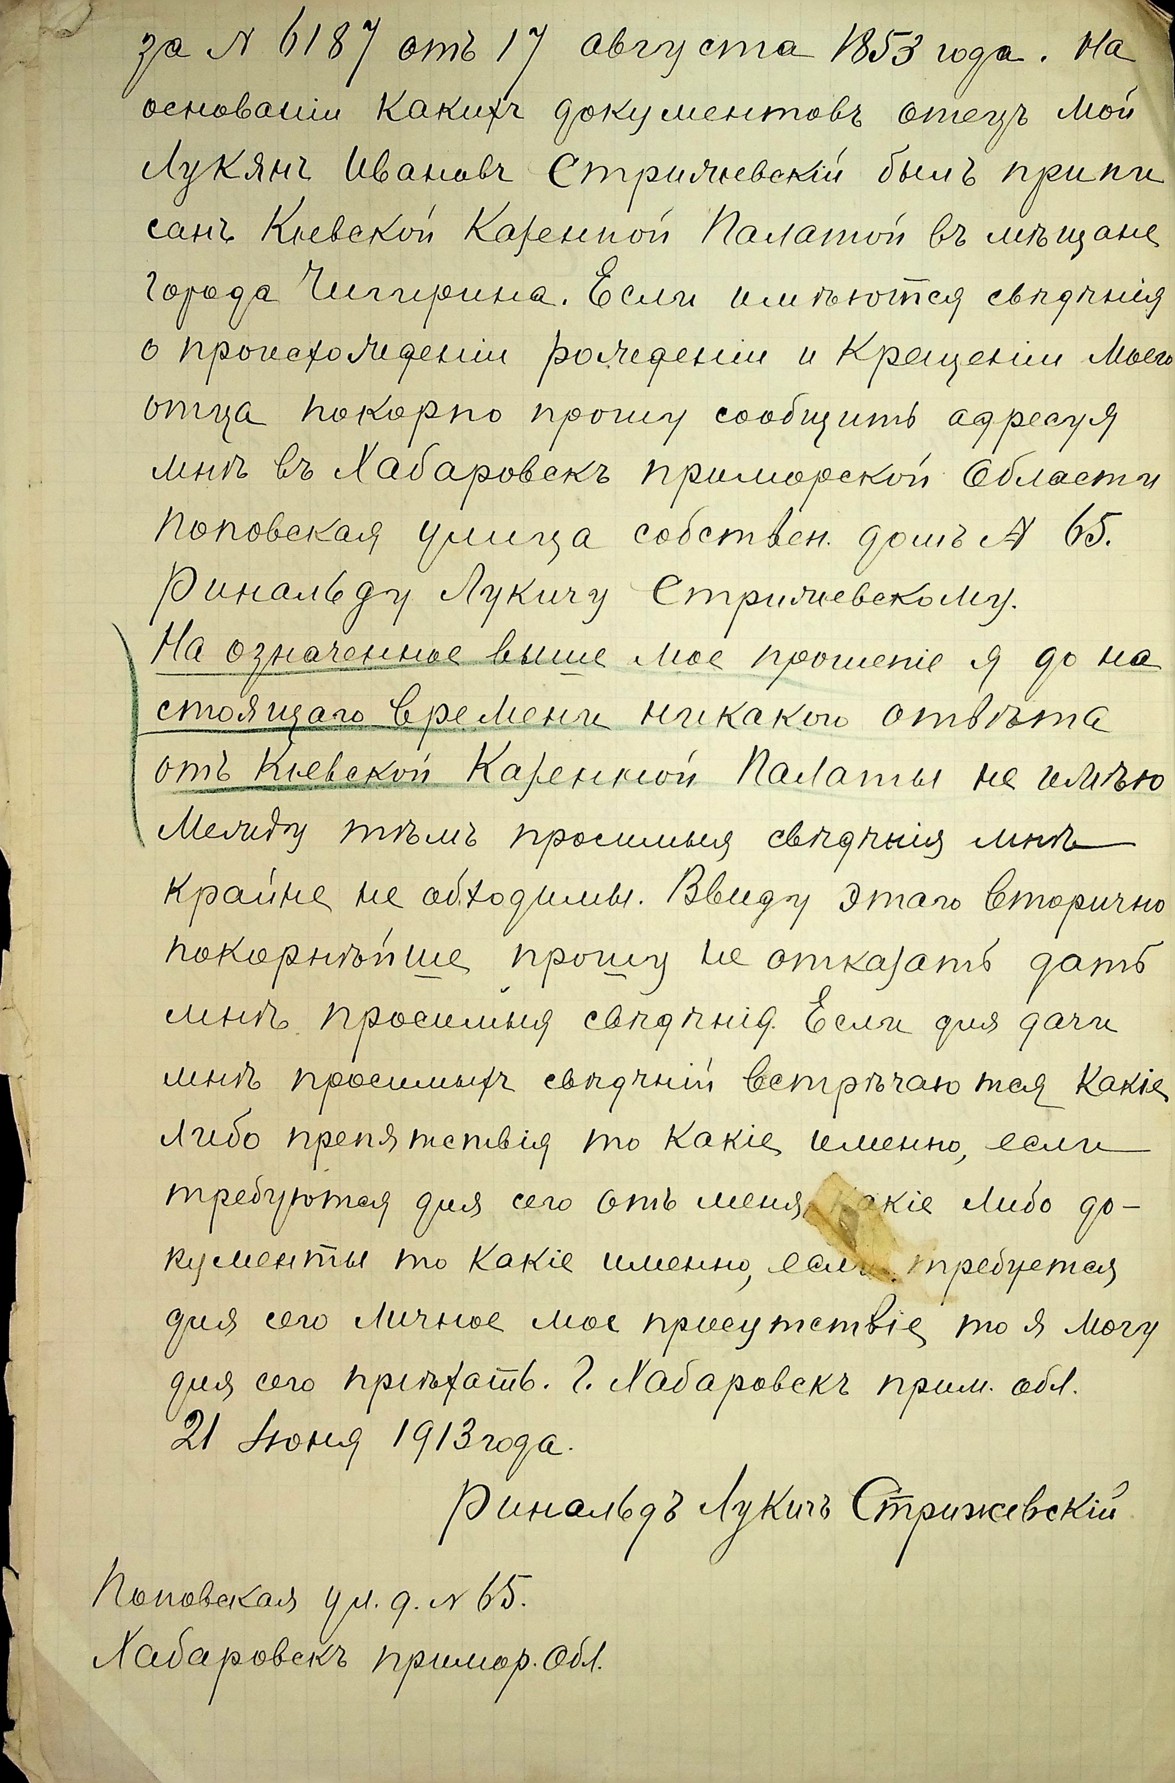 за N 6187 отъ 17 августа 1853 года. На
основаніи какихъ документовъ отецъ мой
Лукянъ Ивановъ Стрижевскій былъ припи
санъ Кіевской Казенной Палатой въ мѣщане
города Чигирина. Если имѣются свѣдѣнія
о происхожденіи рожденіи и крещеніи моего
отца покорно прошу сообщить адресуя
мнѣ въ Хабаровскъ приморской Области
Поповская улица собствен. домъ N 65.
Ринальду Лукичу Стрижевскому.
На означенное выше мое прошеніе я до на
стоящаго времени никакого отвѣта
отъ Кіевской Казенной Палаты не имѣю
Между тѣмъ просимыя свѣдѣнія мнѣ
крайне не обходимы. Ввиду этаго вторично
покорнѣйше прошу не отказать дать
мнѣ просимыя свѣдѣнія. Если для дачи
мнѣ просимыхъ свѣдѣній встрѣчаются какіе
либо препятствія то какіе именно, если
требуются для сего отъ меня какіе либо до-
кументы то какіе именно, если требуется
для сего личное мое присутствіе то я могу
для сего пріѣхать. Г. Хабаровскъ прим. обл.
21 Іюня 1913 года.
Ринальдъ Лукичъ Стрижевскій
Поповская ул. д. N 65.
Хабаровскъ примор. Обл.